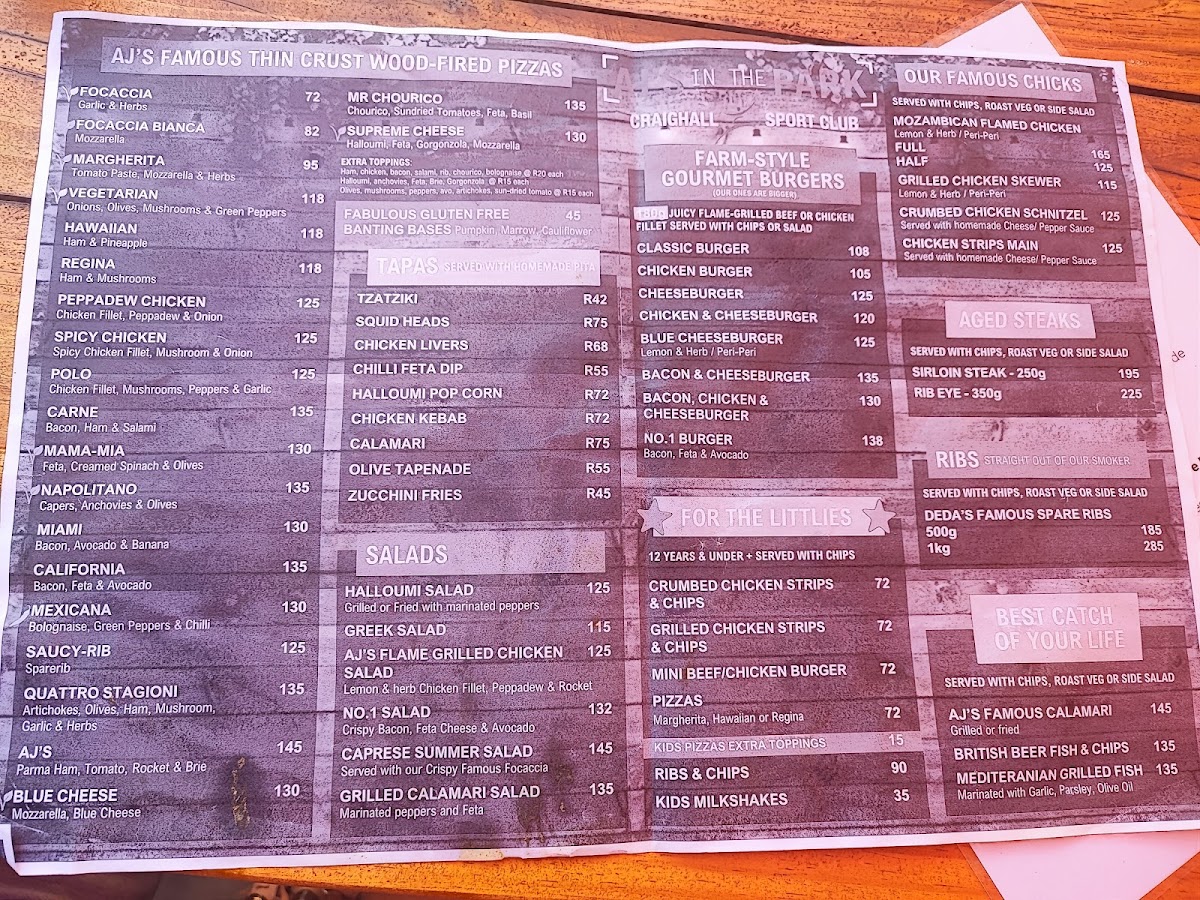 AJ'S FAMOUS THIN CRUST WOOD-FIRED PIZZAS
FOCACCIA 72
Garlic & Herbs
FOCACCIA BIANCA 82
Mozzarella
MARGHERITA 95
Tomato Paste, Mozzarella & Herbs
VEGETARIAN 118
Onions, Olives, Mushrooms & Green Peppers
HAWAIIAN 118
Ham & Pineapple
REGINA 118
Ham & Mushrooms
PEPPADEW CHICKEN 125
Chicken Fillet, Peppadew & Onion
SPICY CHICKEN 125
Spicy Chicken Fillet, Mushroom & Onion
POLO 125
Chicken Fillet, Mushrooms, Peppers & Garlic
CARNE 135
Bacon, Ham & Salami
MAMA-MIA 130
Feta, Creamed Spinach & Olives
NAPOLITANO 135
Capers, Anchovies & Olives
MIAMI 130
Bacon, Avocado & Banana
CALIFORNIA 135
Bacon, Feta & Avocado
MEXICANA 130
Bolognaise, Green Peppers & Chilli
SAUCY-RIB 125
Sparerib
QUATTRO STAGIONI 135
Artichokes, Olives, Ham, Mushroom,
Garlic & Herbs
AJ'S 145
Parma Ham, Tomato, Rocket & Brie
BLUE CHEESE 130
Mozzarella, Blue Cheese
MR CHOURICO 135
Chourico, Sundried Tomatoes, Feta, Basil
SUPREME CHEESE 130
Halloumi, Feta, Gorgonzola, Mozzarella
EXTRA TOPPINGS:
Ham, chicken, bacon, salami, rib, chourico, bolognaise @ R20 each
Halloumi, anchovies, Feta, Brie, Gorgonzola @ R15 each
Olives, mushrooms, peppers, avo, artichokes, sun-dried tomato @ R15 each
FABULOUS GLUTEN FREE 45
BANTING BASES Pumpkin, Marrow, Cauliflower
TAPAS SERVED WITH HOMEMADE PITA
TZATZIKI R42
SQUID HEADS R75
CHICKEN LIVERS R68
CHILLI FETA DIP R55
HALLOUMI POP CORN R72
CHICKEN KEBAB R72
CALAMARI R75
OLIVE TAPENADE R55
ZUCCHINI FRIES R45
SALADS
HALLOUMI SALAD 125
Grilled or Fried with marinated peppers
GREEK SALAD 115
AJ'S FLAME GRILLED CHICKEN 125
SALAD
Lemon & herb Chicken Fillet, Peppadew & Rocket
NO.1 SALAD 132
Crispy Bacon, Feta Cheese & Avocado
CAPRESE SUMMER SALAD 145
Served with our Crispy Famous Focaccia
GRILLED CALAMARI SALAD 135
Marinated peppers and Feta
AJ'S IN THE PARK
CRAIGHALL SPORT CLUB
FARM-STYLE
GOURMET BURGERS
(OUR ONES ARE BIGGER)
180g JUICY FLAME-GRILLED BEEF OR CHICKEN
FILLET SERVED WITH CHIPS OR SALAD
CLASSIC BURGER 108
CHICKEN BURGER 105
CHEESEBURGER 125
CHICKEN & CHEESEBURGER 120
BLUE CHEESEBURGER 125
Lemon & Herb / Peri-Peri
BACON & CHEESEBURGER 135
BACON, CHICKEN & 130
CHEESEBURGER
NO.1 BURGER 138
Bacon, Feta & Avocado
FOR THE LITTLIES
12 YEARS & UNDER + SERVED WITH CHIPS
CRUMBED CHICKEN STRIPS 72
& CHIPS
GRILLED CHICKEN STRIPS 72
& CHIPS
MINI BEEF/CHICKEN BURGER 72
PIZZAS
Margherita, Hawaiian or Regina 72
KIDS PIZZAS EXTRA TOPPINGS 15
RIBS & CHIPS 90
KIDS MILKSHAKES 35
OUR FAMOUS CHICKS
SERVED WITH CHIPS, ROAST VEG OR SIDE SALAD
MOZAMBICAN FLAMED CHICKEN
Lemon & Herb / Peri-Peri
FULL 165
HALF 125
GRILLED CHICKEN SKEWER 115
Lemon & Herb / Peri-Peri
CRUMBED CHICKEN SCHNITZEL 125
Served with homemade Cheese/ Pepper Sauce
CHICKEN STRIPS MAIN 125
Served with homemade Cheese/ Pepper Sauce
AGED STEAKS
SERVED WITH CHIPS, ROAST VEG OR SIDE SALAD
SIRLOIN STEAK - 250g 195
RIB EYE - 350g 225
RIBS STRAIGHT OUT OF OUR SMOKER
SERVED WITH CHIPS, ROAST VEG OR SIDE SALAD
DEDA'S FAMOUS SPARE RIBS
500g 185
1kg 285
BEST CATCH
OF YOUR LIFE
SERVED WITH CHIPS, ROAST VEG OR SIDE SALAD
AJ'S FAMOUS CALAMARI 145
Grilled or fried
BRITISH BEER FISH & CHIPS 135
MEDITERANIAN GRILLED FISH 135
Marinated with Garlic, Parsley, Olive Oil